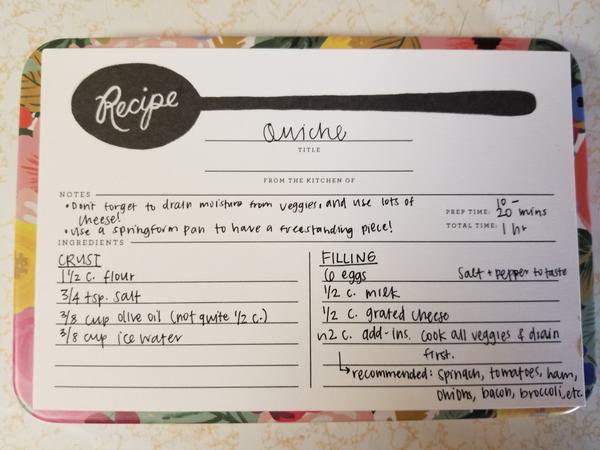 Recipe
Quiche
TITLE
FROM THE KITCHEN OF
NOTES
• Don't forget to drain moisture from veggies, and use lots of
cheese!
• Use a springform pan to have a freestanding piece!
PREP TIME: 10-
20 mins
TOTAL TIME: 1 hr
INGREDIENTS
CRUST
1 1/2 c. flour
3/4 tsp. salt
3/8 cup olive oil (not quite 1/2 c.)
3/8 cup ice water
FILLING
6 eggs
Salt + pepper to taste
1/2 c. milk
1/2 c. grated cheese
~2 c. add-ins. Cook all veggies & drain
first.
recommended: spinach, tomatoes, ham,
onions, bacon, broccoli, etc.